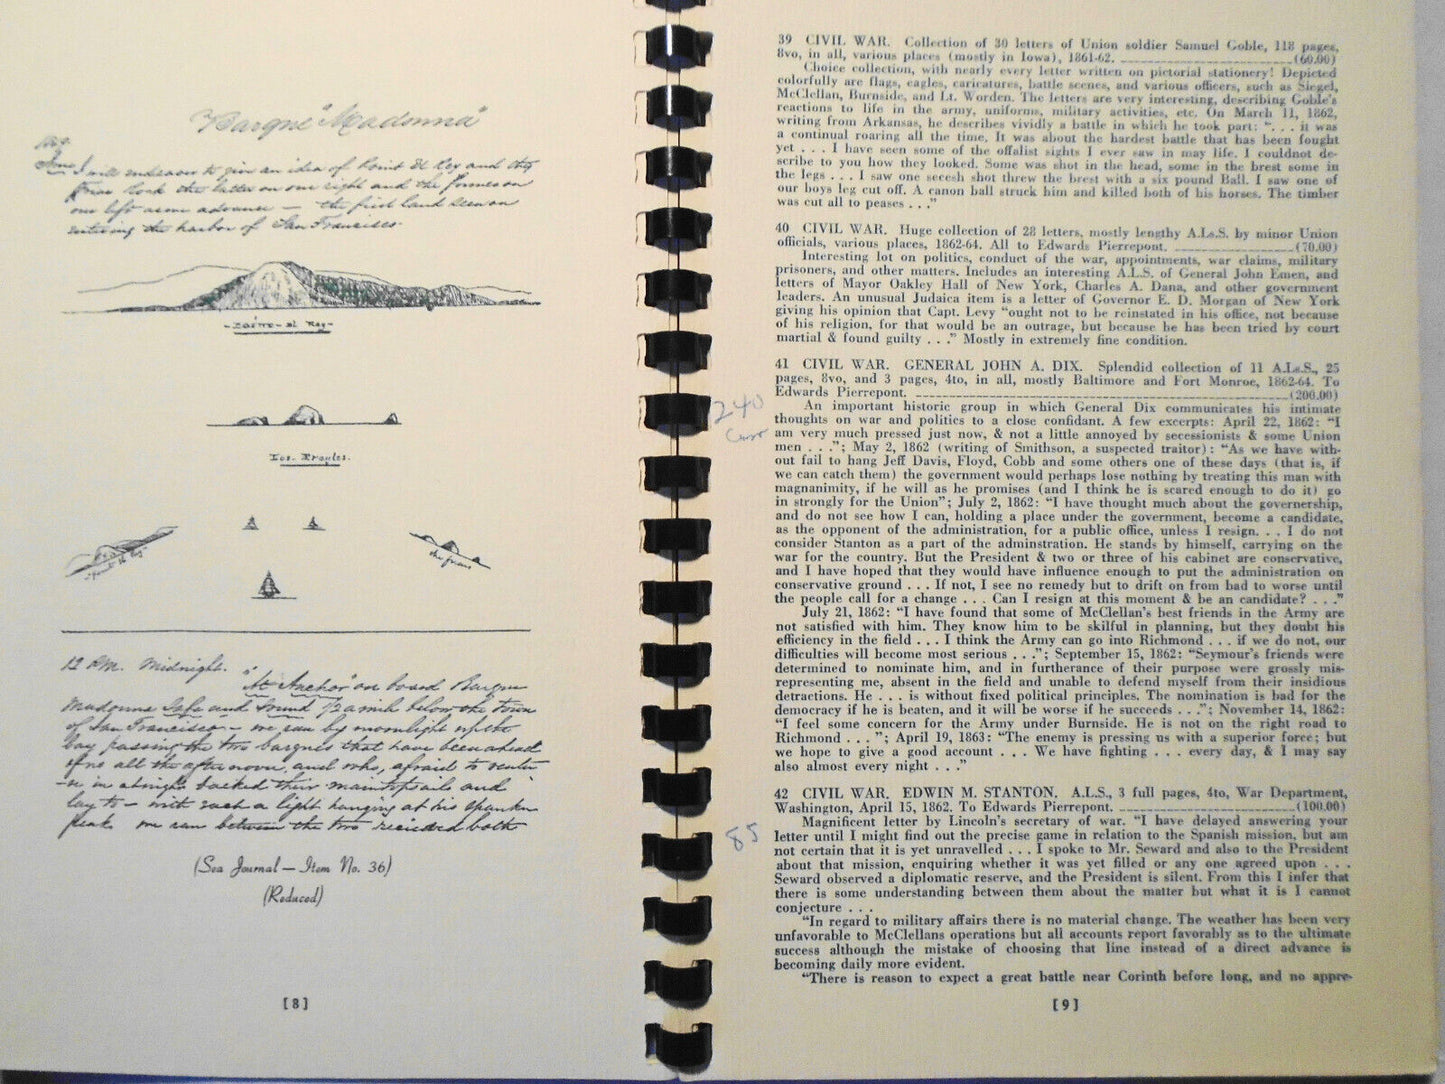 Barque "Madonna"
I will endeavor to give an idea of Point El Rey and the
rock the latter on our right and the former on
our left as we advance — the first land seen on
entering the harbor of San Francisco.
Los
12 P.M. Midnight.
"At Anchor" on board Barque
Madonna Safe and Sound 1/2 a mile below the town
of San Francisco — we ran by moonlight up the
bay passing the two barques that have been ahead
of us all the afternoon and who, afraid to ventu
in at night backed their maintopsails and
lay to — with each a light hanging at his spanker
peak we ran between the two received both
(Sea Journal — Item No. 36)
(Reduced)
[8]
39 CIVIL WAR. Collection of 30 letters of Union soldier Samuel Goble, 118 pages,
8vo, in all, various places (mostly in Iowa), 1861-62. (60.00)
Choice collection, with nearly every letter written on pictorial stationery! Depicted
colorfully are flags, eagles, caricatures, battle scenes, and various officers, such as Siegel,
McClellan, Burnside, and Lt. Worden. The letters are very interesting, describing Goble's
reactions to life in the army, uniforms, military activities, etc. On March 11, 1862,
writing from Arkansas, he describes vividly a battle in which he took part: ". . . it was
a continual roaring all the time. It was about the hardest battle that has been fought
yet . . . I have seen some of the offalist sights I ever saw in may life. I couldnot de-
scribe to you how they looked. Some was shot in the head, some in the brest some in
the legs . . . I saw one secesh shot threw the brest with a six pound Ball. I saw one of
our boys leg cut off. A canon ball struck him and killed both of his horses. The timber
was cut all to peases . . ."
40 CIVIL WAR. Huge collection of 28 letters, mostly lengthy A.Ls.S. by minor Union
officials, various places, 1862-64. All to Edwards Pierrepont. (70.00)
Interesting lot on politics, conduct of the war, appointments, war claims, military
prisoners, and other matters. Includes an interesting A.L.S. of General John Emen, and
letters of Mayor Oakley Hall of New York, Charles A. Dana, and other government
leaders. An unusual Judaica item is a letter of Governor E. D. Morgan of New York
giving his opinion that Capt. Levy "ought not to be reinstated in his office, not because
of his religion, for that would be an outrage, but because he has been tried by court
martial & found guilty . . ." Mostly in extremely fine condition.
41 CIVIL WAR. GENERAL JOHN A. DIX. Splendid collection of 11 A.Ls.S., 25
pages, 8vo, and 3 pages, 4to, in all, mostly Baltimore and Fort Monroe, 1862-64. To
Edwards Pierrepont. (200.00)
240
An important historic group in which General Dix communicates his intimate
thoughts on war and politics to a close confidant. A few excerpts: April 22, 1862: "I
am very much pressed just now, & not a little annoyed by secessionists & some Union
men . . ."; May 2, 1862 (writing of Smithson, a suspected traitor): "As we have with-
out fail to hang Jeff Davis, Floyd, Cobb and some others one of these days (that is, if
we can catch them) the government would perhaps lose nothing by treating this man with
magnanimity, if he will as he promises (and I think he is scared enough to do it) go
in strongly for the Union"; July 2, 1862: "I have thought much about the governership,
and do not see how I can, holding a place under the government, become a candidate,
as the opponent of the administration, for a public office, unless I resign. . . I do not
consider Stanton as a part of the adminstration. He stands by himself, carrying on the
war for the country. But the President & two or three of his cabinet are conservative,
and I have hoped that they would have influence enough to put the administration on
conservative ground . . . If not, I see no remedy but to drift on from bad to worse until
the people call for a change . . . Can I resign at this moment & be an candidate? . . ."
July 21, 1862: "I have found that some of McClellan's best friends in the Army are
not satisfied with him. They know him to be skilful in planning, but they doubt his
efficiency in the field . . . I think the Army can go into Richmond . . . if we do not, our
difficulties will become most serious . . ."; September 15, 1862: "Seymour's friends were
determined to nominate him, and in furtherance of their purpose were grossly mis-
representing me, absent in the field and unable to defend myself from their insidious
detractions. He . . . is without fixed political principles. The nomination is bad for the
democracy if he is beaten, and it will be worse if he succeeds . . ."; November 14, 1862:
"I feel some concern for the Army under Burnside. He is not on the right road to
Richmond . . ."; April 19, 1863: "The enemy is pressing us with a superior force; but
we hope to give a good account . . . We have fighting . . . every day, & I may say
also almost every night . . ."
42 CIVIL WAR. EDWIN M. STANTON. A.L.S., 3 full pages, 4to, War Department,
Washington, April 15, 1862. To Edwards Pierrepont. (100.00)
85
Magnificent letter by Lincoln's secretary of war. "I have delayed answering your
letter until I might find out the precise game in relation to the Spanish mission, but am
not certain that it is yet unravelled . . . I spoke to Mr. Seward and also to the President
about that mission, enquiring whether it was yet filled or any one agreed upon . . .
Seward observed a diplomatic reserve, and the President is silent. From this I infer that
there is some understanding between them about the matter but what it is I cannot
conjecture . . .
"In regard to military affairs there is no material change. The weather has been very
unfavorable to McClellans operations but all accounts report favorably as to the ultimate
success although the mistake of choosing that line instead of a direct advance is
becoming daily more evident.
"There is reason to expect a great battle near Corinth before long, and no appre-
[9]